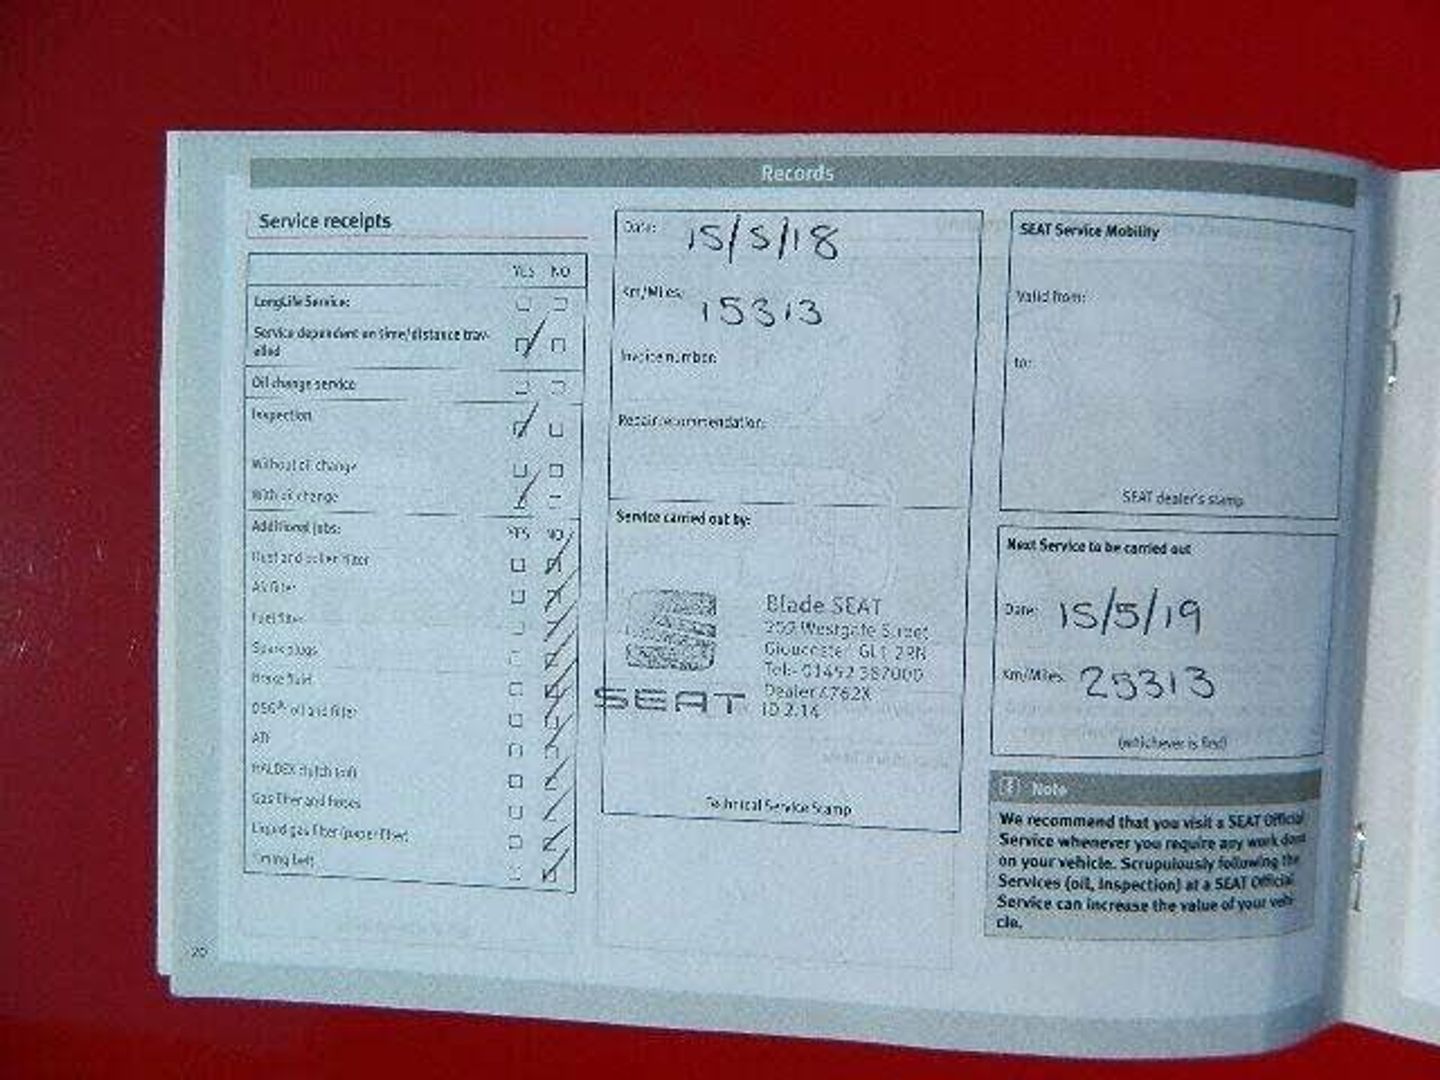 Records
Service receipts
YES NO
LongLife Service:
Service dependent on time/distance trav-
elled
Oil change service
Inspection
Without oil change
With oil change
Additional jobs:
YES NO
Dust and pollen filter
Air filter
Fuel filter
Spark plugs
Brake fluid
DSG® oil and filter
ATF
HALDEX clutch (oil)
Gas filter and hoses
Liquid gas filter (paper filter)
Timing belt
20
Date: 15/5/18
Km/Miles: 15313
Invoice number:
Repair recommendation:
Service carried out by:
SEAT
Blade SEAT
Westgate Street
Gloucester GL1 2RN
Tel:- 01452 387000
Dealer
ID 2.14
Technical Service Stamp
SEAT Service Mobility
Valid from:
to:
SEAT dealer's stamp
Next Service to be carried out
Date: 15/5/19
Km/Miles: 25313
(whichever is first)
Note
We recommend that you visit a SEAT Official
Service whenever you require any work done
on your vehicle. Scrupulously following the
Services (oil, Inspection) at a SEAT Official
Service can increase the value of your vehi-
cle.